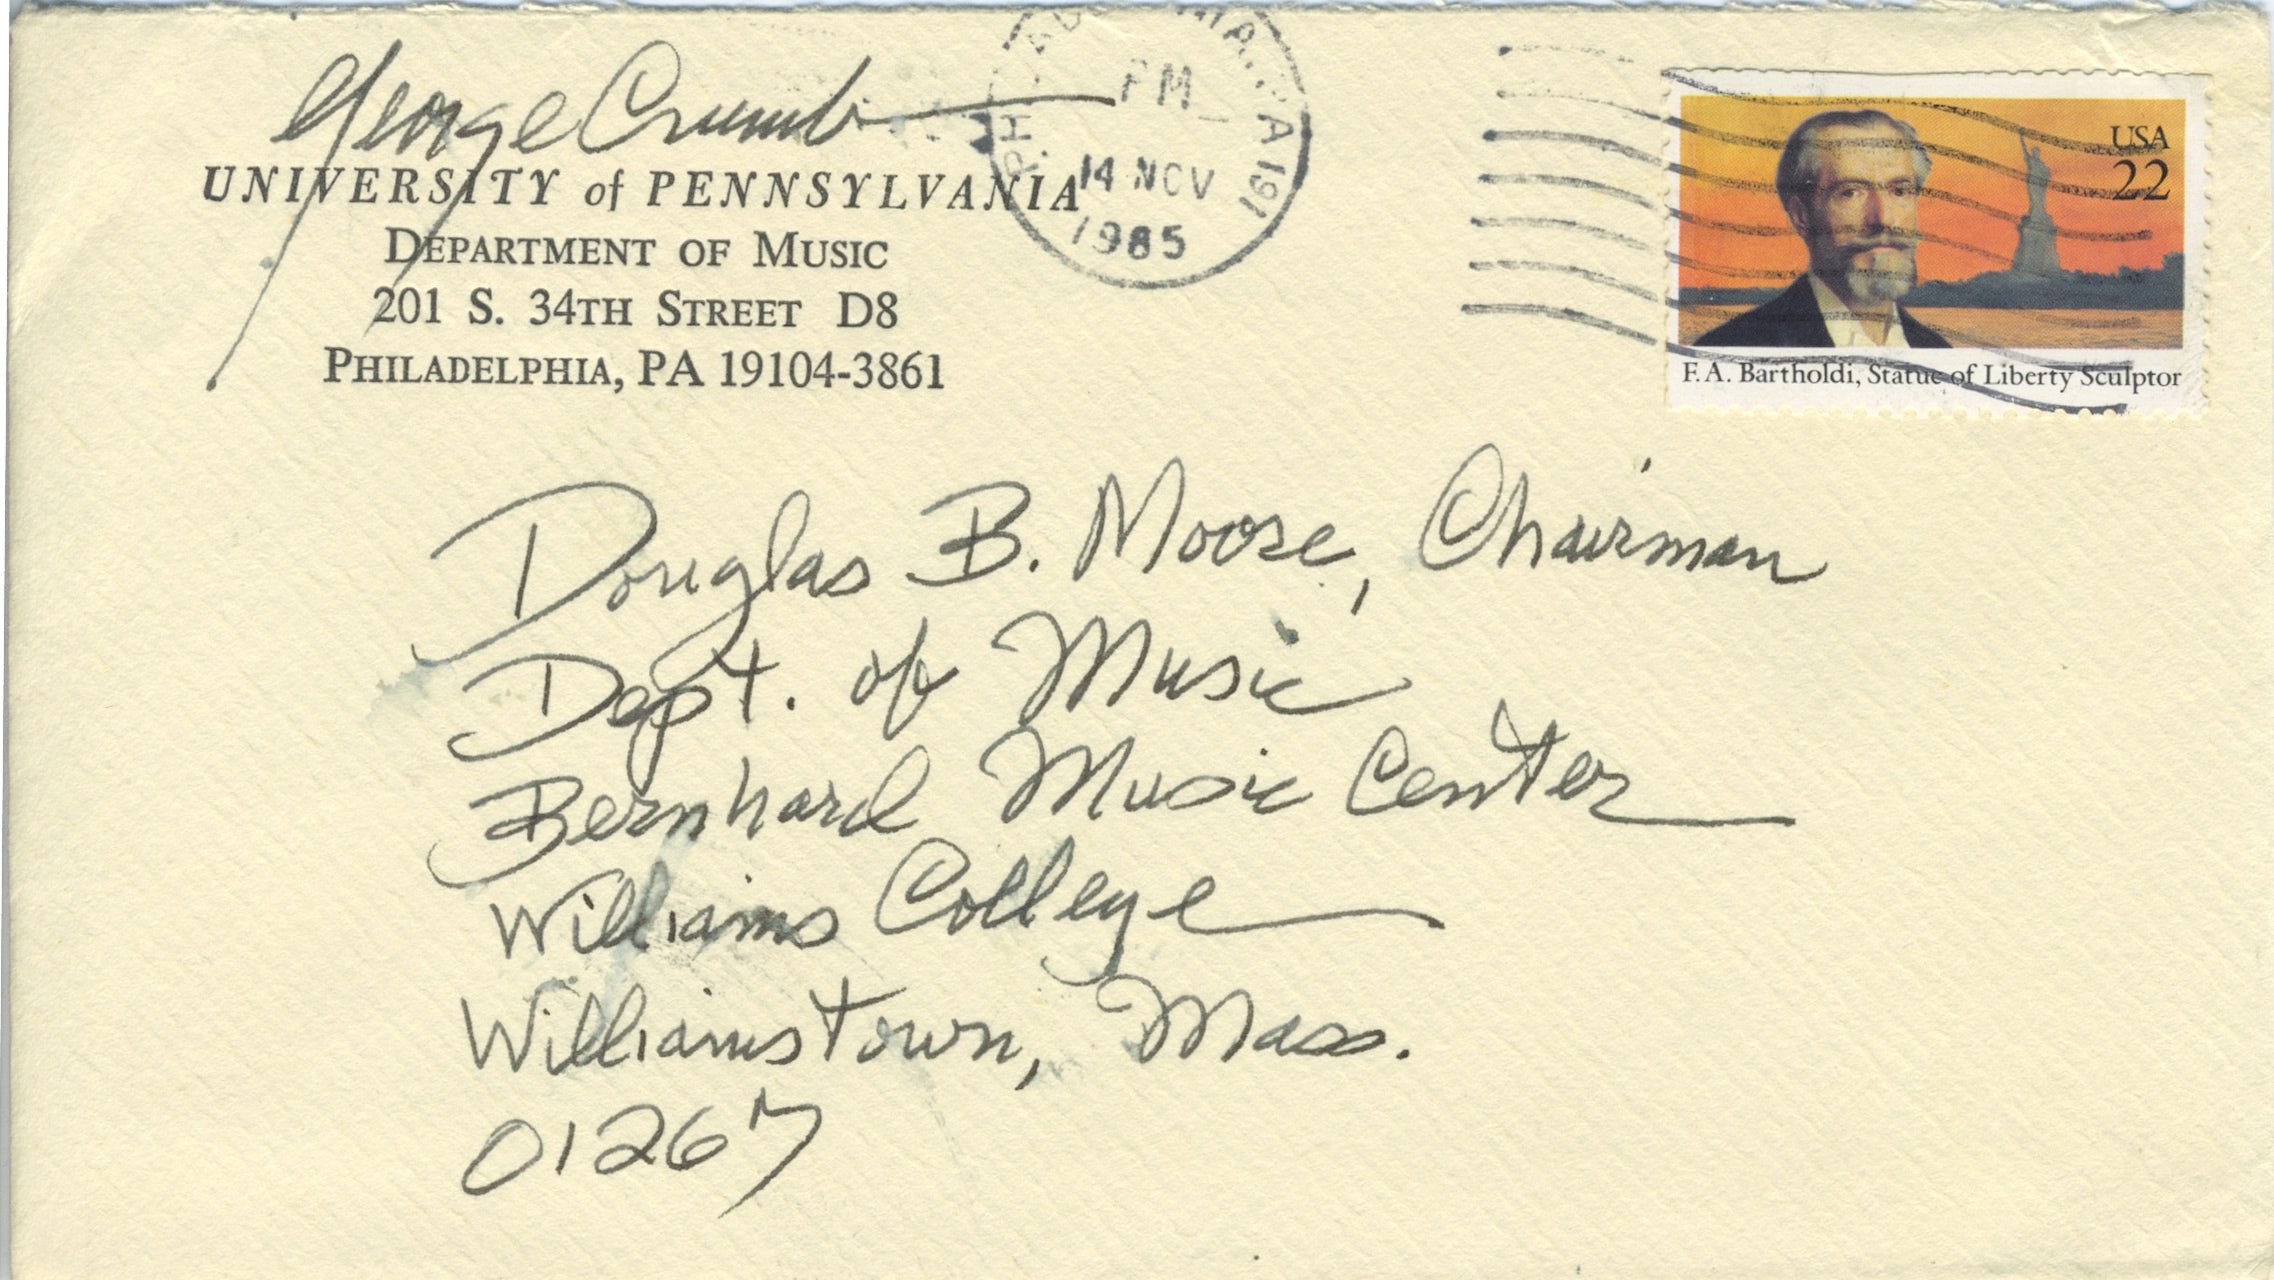 George Crumb
UNIVERSITY of PENNSYLVANIA
DEPARTMENT OF MUSIC
201 S. 34TH STREET D8
PHILADELPHIA, PA 19104-3861
PM
14 NOV
1985
PA 191
USA
22
F.A. Bartholdi, Statue of Liberty Sculptor
Douglas B. Moore, Chairman
Dept. of Music
Bernhard Music Center
Williams College
Williamstown, Mass.
01267